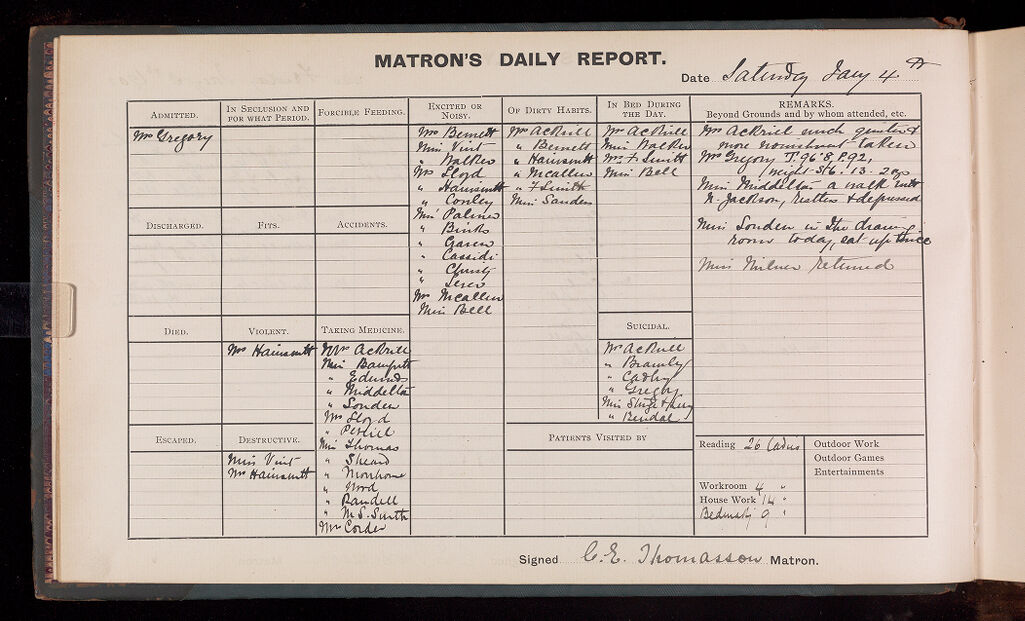 MATRON'S DAILY REPORT.
Date Saturday Jany 4th
ADMITTED.
Mrs Gregory
DISCHARGED.
DIED.
ESCAPED.
IN SECLUSION AND
FOR WHAT PERIOD.
FITS.
VIOLENT.
Mrs Hainsworth
DESTRUCTIVE.
Miss Vint
Mrs Hainsworth
FORCIBLE FEEDING.
ACCIDENTS.
TAKING MEDICINE.
Mrs Ackrill
Miss
" Edmunds
" Middleton
" Sonden
Mrs Lloyd
"
Miss Thomas
" Sheard
"
" Nord
" Randell
" M. S. Smith
Mrs Corder
EXCITED OR
NOISY.
Mrs Bennett
Miss Vint
" Walker
Mrs Lloyd
" Hainsworth
" Conley
Miss Palmer
" Binks
"
" Cassidi
" Christy
"
Mrs McCallen
Miss Bell
OF DIRTY HABITS.
Mrs Ackrill
" Bennett
" Hainsworth
" McCallen
" F Smith
Miss Sanders
IN BED DURING
THE DAY.
Mrs Ackrill
Miss Walker
Mrs F Smith
Miss Bell
SUICIDAL.
Mrs Ackrill
" Bramley
" Cadby
" Gregory
Miss
" Bendal
PATIENTS VISITED BY
REMARKS.
Beyond Grounds and by whom attended, etc.
Mrs Ackrill much quieter &
more nourishment taken
Mrs Gregory T. 96°8 P. 92,
weight St 6. 13. 2 ozs
Miss Middleton a walk with
N. Jackson, restless & depressed
Miss Sonden in the drawing
room today, sat up twice
Miss Milner returned
Reading 26 Ladies
Workroom 4 "
House Work 14 "
9 "
Outdoor Work
Outdoor Games
Entertainments
Signed C. E. Thomasson Matron.